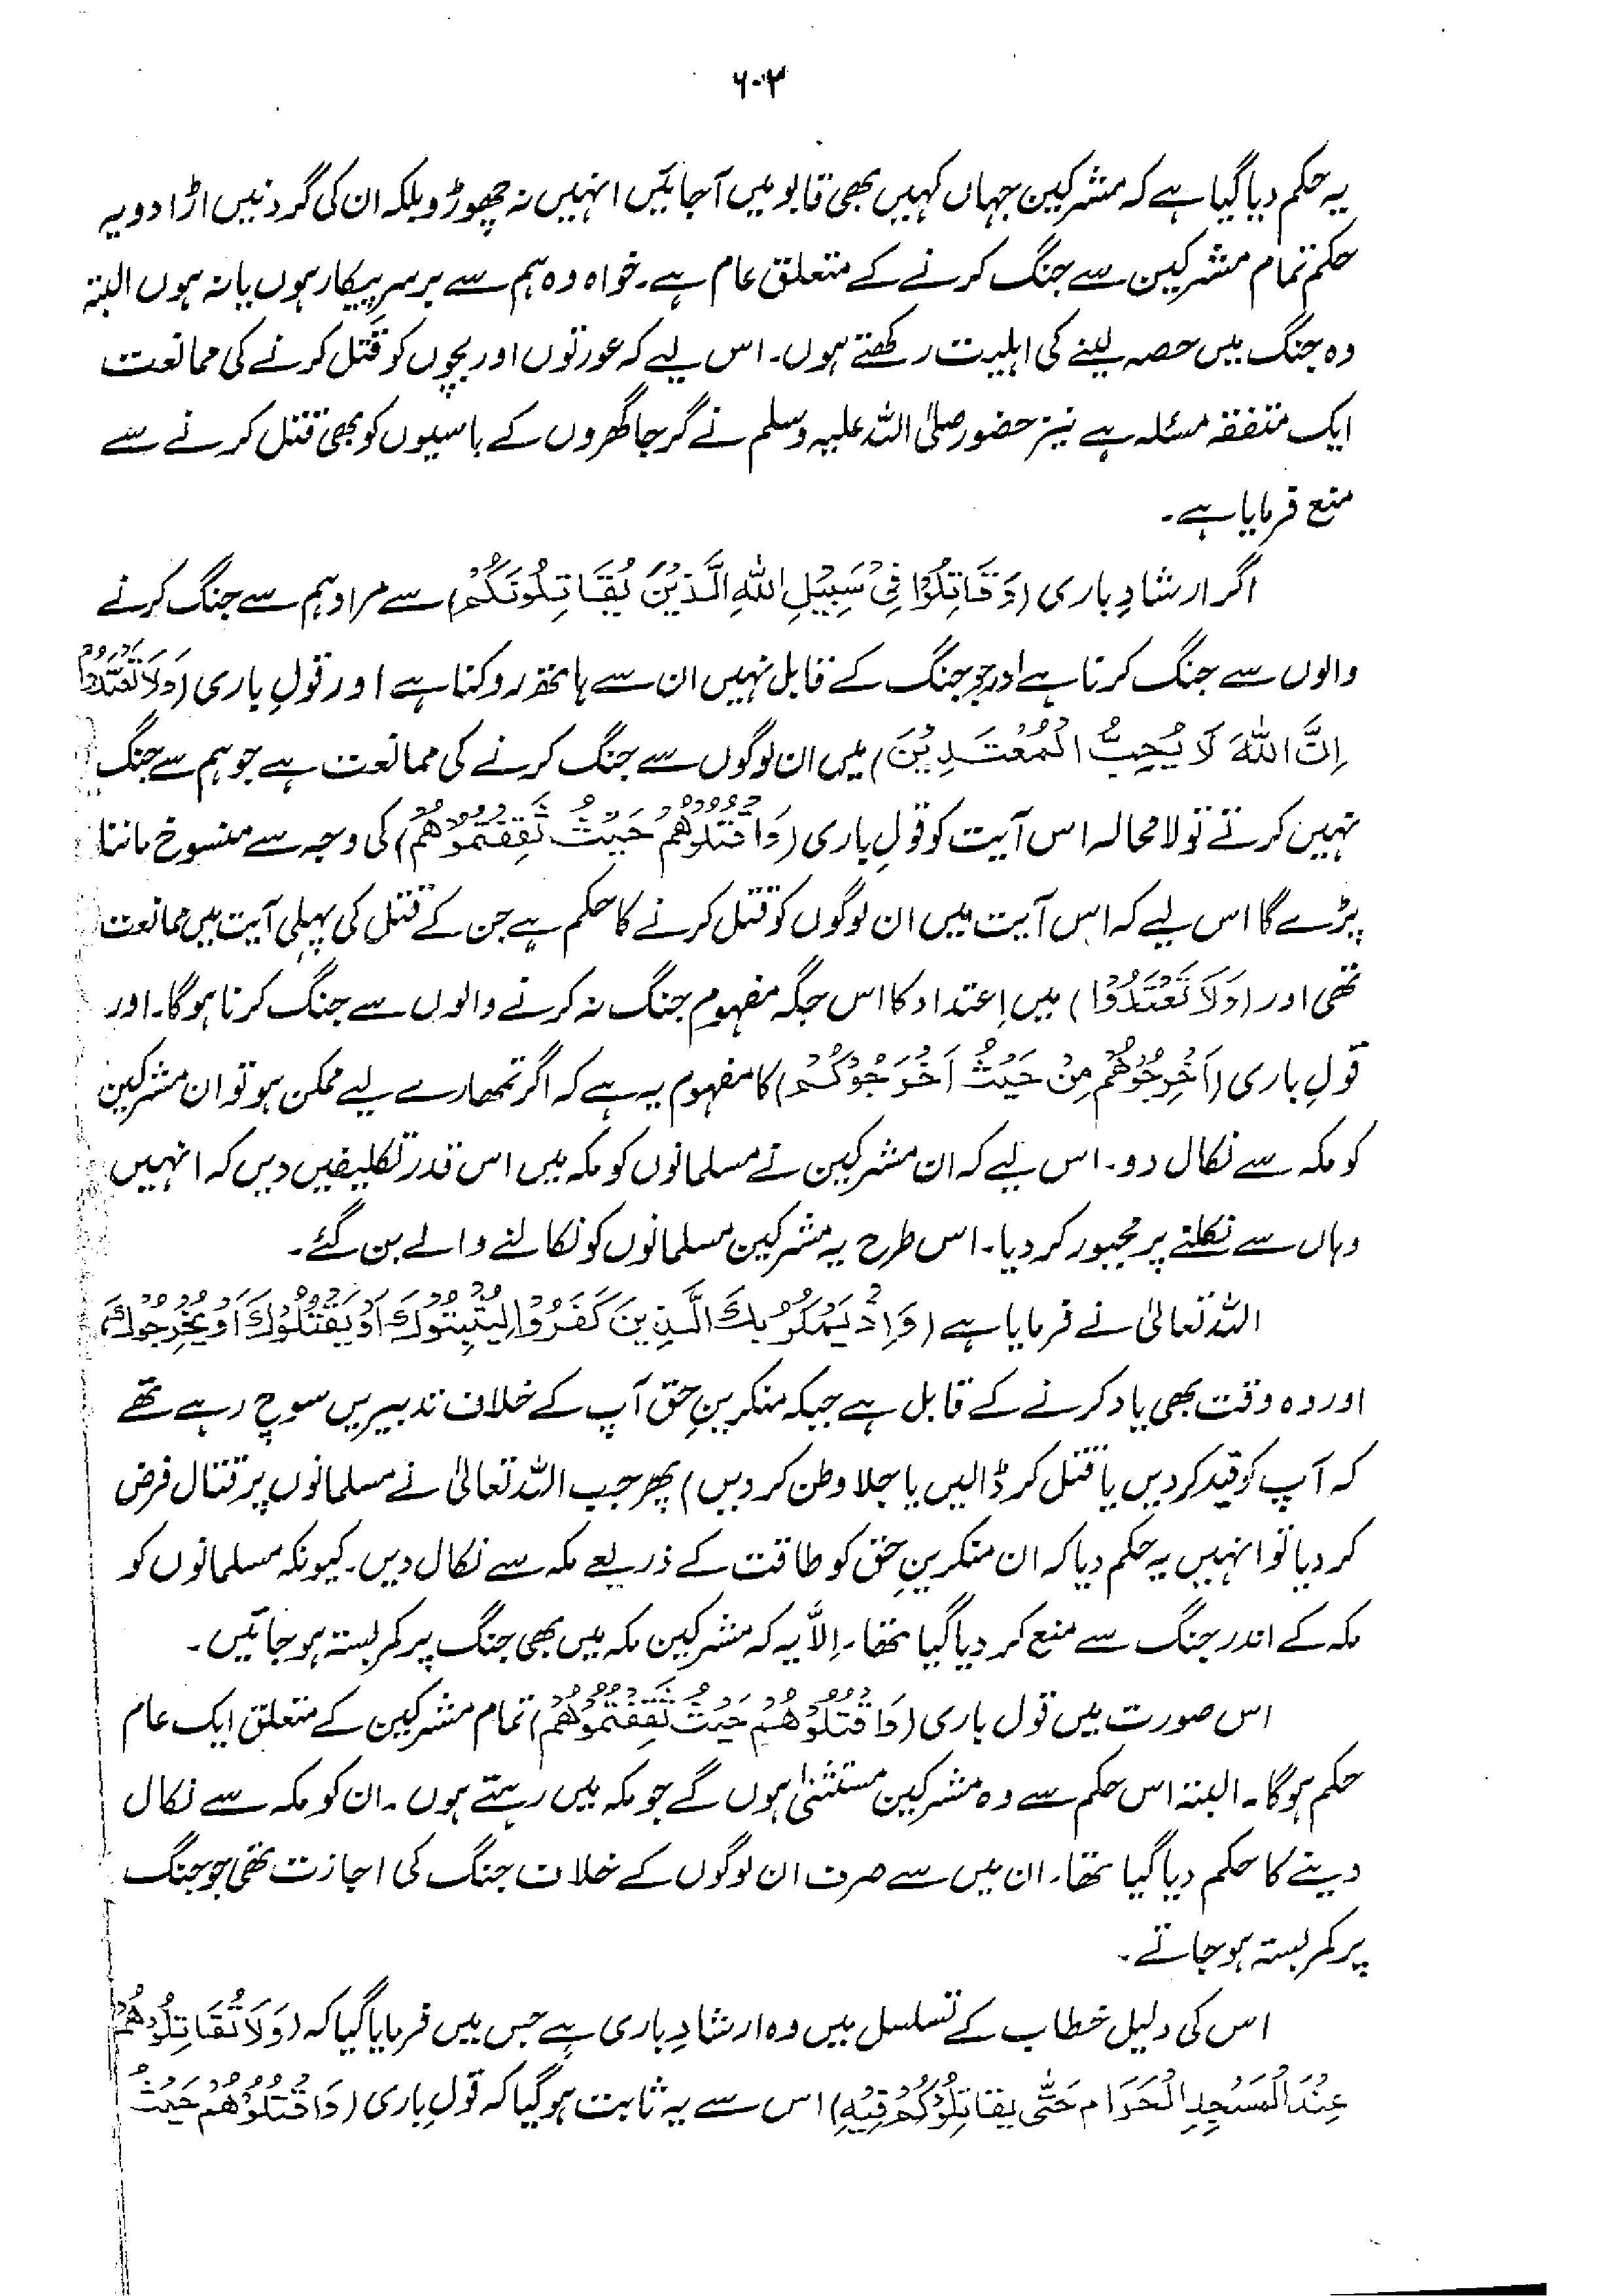 ۶۰۳
یہ حکم دیا گیا ہے کہ مشرکین جہاں کہیں بھی قابو میں آجائیں انہیں نہ چھوڑو بلکہ ان کی گردنیں اڑا دو یہ
حکم تمام مشرکین سے جنگ کرنے کے متعلق عام ہے۔ خواہ وہ ہم سے برسرِ پیکار ہوں یا نہ ہوں البتہ
وہ جنگ میں حصہ لینے کی اہلیت رکھتے ہوں۔ اس لیے کہ عورتوں اور بچوں کو قتل کرنے کی ممانعت
ایک متفقہ مسئلہ ہے نیز حضور صلی اللہ علیہ وسلم نے گرجا گھروں کے باسیوں کو بھی قتل کرنے سے
منع فرمایا ہے۔
اگر ارشادِ باری (وَقَاتِلُوْا فِيْ سَبِيْلِ اللهِ الَّذِيْنَ يُقَاتِلُوْنَكُمْ) سے مراد ہم سے جنگ کرنے
والوں سے جنگ کرنا ہے اور جو جنگ کے قابل نہیں ان سے ہاتھ روکنا ہے اور قولِ باری (وَلَا تَعْتَدُوْا
اِنَّ اللهَ لَا يُحِبُّ الْمُعْتَدِيْنَ) میں ان لوگوں سے جنگ کرنے کی ممانعت ہے جو ہم سے جنگ
نہیں کرتے تو لامحالہ اس آیت کو قولِ باری (وَاقْتُلُوْهُمْ حَيْثُ ثَقِفْتُمُوْهُمْ) کی وجہ سے منسوخ ماننا
پڑے گا اس لیے کہ اس آیت میں ان لوگوں کو قتل کرنے کا حکم ہے جن کے قتل کی پہلی آیت میں ممانعت
تھی اور (وَلَا تَعْتَدُوْا) میں اِعتداء کا اس جگہ مفہوم جنگ نہ کرنے والوں سے جنگ کرنا ہوگا۔ اور
قولِ باری (اَخْرِجُوْهُمْ مِنْ حَيْثُ اَخْرَجُوْكُمْ) کا مفہوم یہ ہے کہ اگر تمھارے لیے ممکن ہو تو ان مشرکین
کو مکہ سے نکال دو۔ اس لیے کہ ان مشرکین نے مسلمانوں کو مکہ میں اس قدر تکلیفیں دیں کہ انہیں
وہاں سے نکلنے پر مجبور کر دیا۔ اس طرح یہ مشرکین مسلمانوں کو نکالنے والے بن گئے۔
اللہ تعالیٰ نے فرمایا ہے (وَاِذْ يَمْكُرُ بِكَ الَّذِيْنَ كَفَرُوْا لِيُثْبِتُوْكَ اَوْ يَقْتُلُوْكَ اَوْ يُخْرِجُوْكَ
اور وہ وقت بھی یاد کرنے کے قابل ہے جبکہ منکرینِ حق آپ کے خلاف تدبیریں سوچ رہے تھے
کہ آپ کو قید کر دیں یا قتل کر ڈالیں یا جلا وطن کر دیں) پھر جب اللہ تعالیٰ نے مسلمانوں پر قتال فرض
کر دیا تو انہیں یہ حکم دیا کہ ان منکرینِ حق کو طاقت کے ذریعے مکہ سے نکال دیں۔ کیونکہ مسلمانوں کو
مکہ کے اندر جنگ سے منع کر دیا گیا تھا۔ اِلّا یہ کہ مشرکین مکہ میں بھی جنگ پر کمربستہ ہو جائیں۔
اس صورت میں قول باری (وَاقْتُلُوْهُمْ حَيْثُ ثَقِفْتُمُوْهُمْ) تمام مشرکین کے متعلق ایک عام
حکم ہوگا۔ البتہ اس حکم سے وہ مشرکین مستثنیٰ ہوں گے جو مکہ میں رہتے ہوں۔ ان کو مکہ سے نکال
دینے کا حکم دیا گیا تھا۔ ان میں سے صرف ان لوگوں کے خلاف جنگ کی اجازت تھی جو جنگ
پر کمربستہ ہو جاتے۔
اس کی دلیل خطاب کے تسلسل میں وہ ارشادِ باری ہے جس میں فرمایا گیا کہ (وَلَا تُقَاتِلُوْهُمْ
عِنْدَ الْمَسْجِدِ الْحَرَامِ حَتّٰى يُقَاتِلُوْكُمْ فِيْهِ) اس سے یہ ثابت ہوگیا کہ قولِ باری (وَاقْتُلُوْهُمْ حَيْثُ